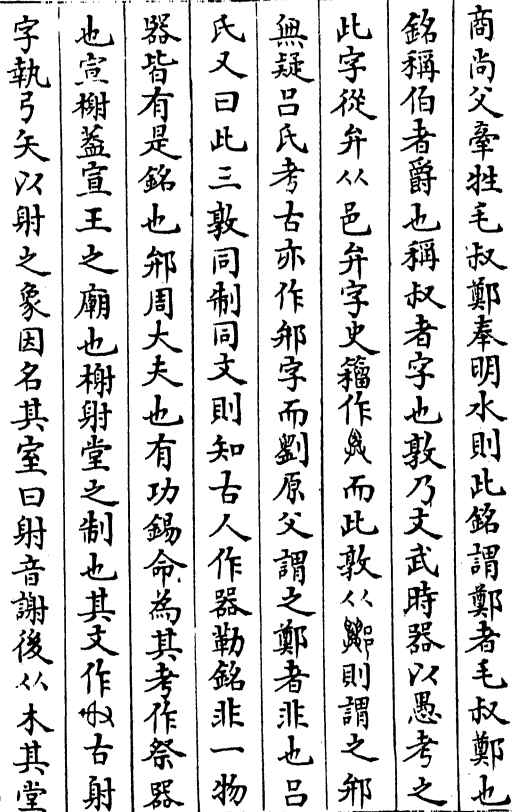 商尚父牽牲毛叔鄭奉明水則此銘謂鄭者毛叔鄭也
銘稱伯者爵也稱叔者字也敦乃文武時器以愚考之
此字從弁从邑弁字史籀作而此敦从則謂之䢵
無疑呂氏考古亦作䢵字而劉原父謂之鄭者非也呂
氏又曰此三敦同制同文則知古人作器勒銘非一物
器皆有是銘也䢵周大夫也有功錫命為其考作祭器
也宣榭葢宣王之廟也榭射堂之制也其文作古射
字執弓矢以射之象因名其室曰射音謝後从木其堂